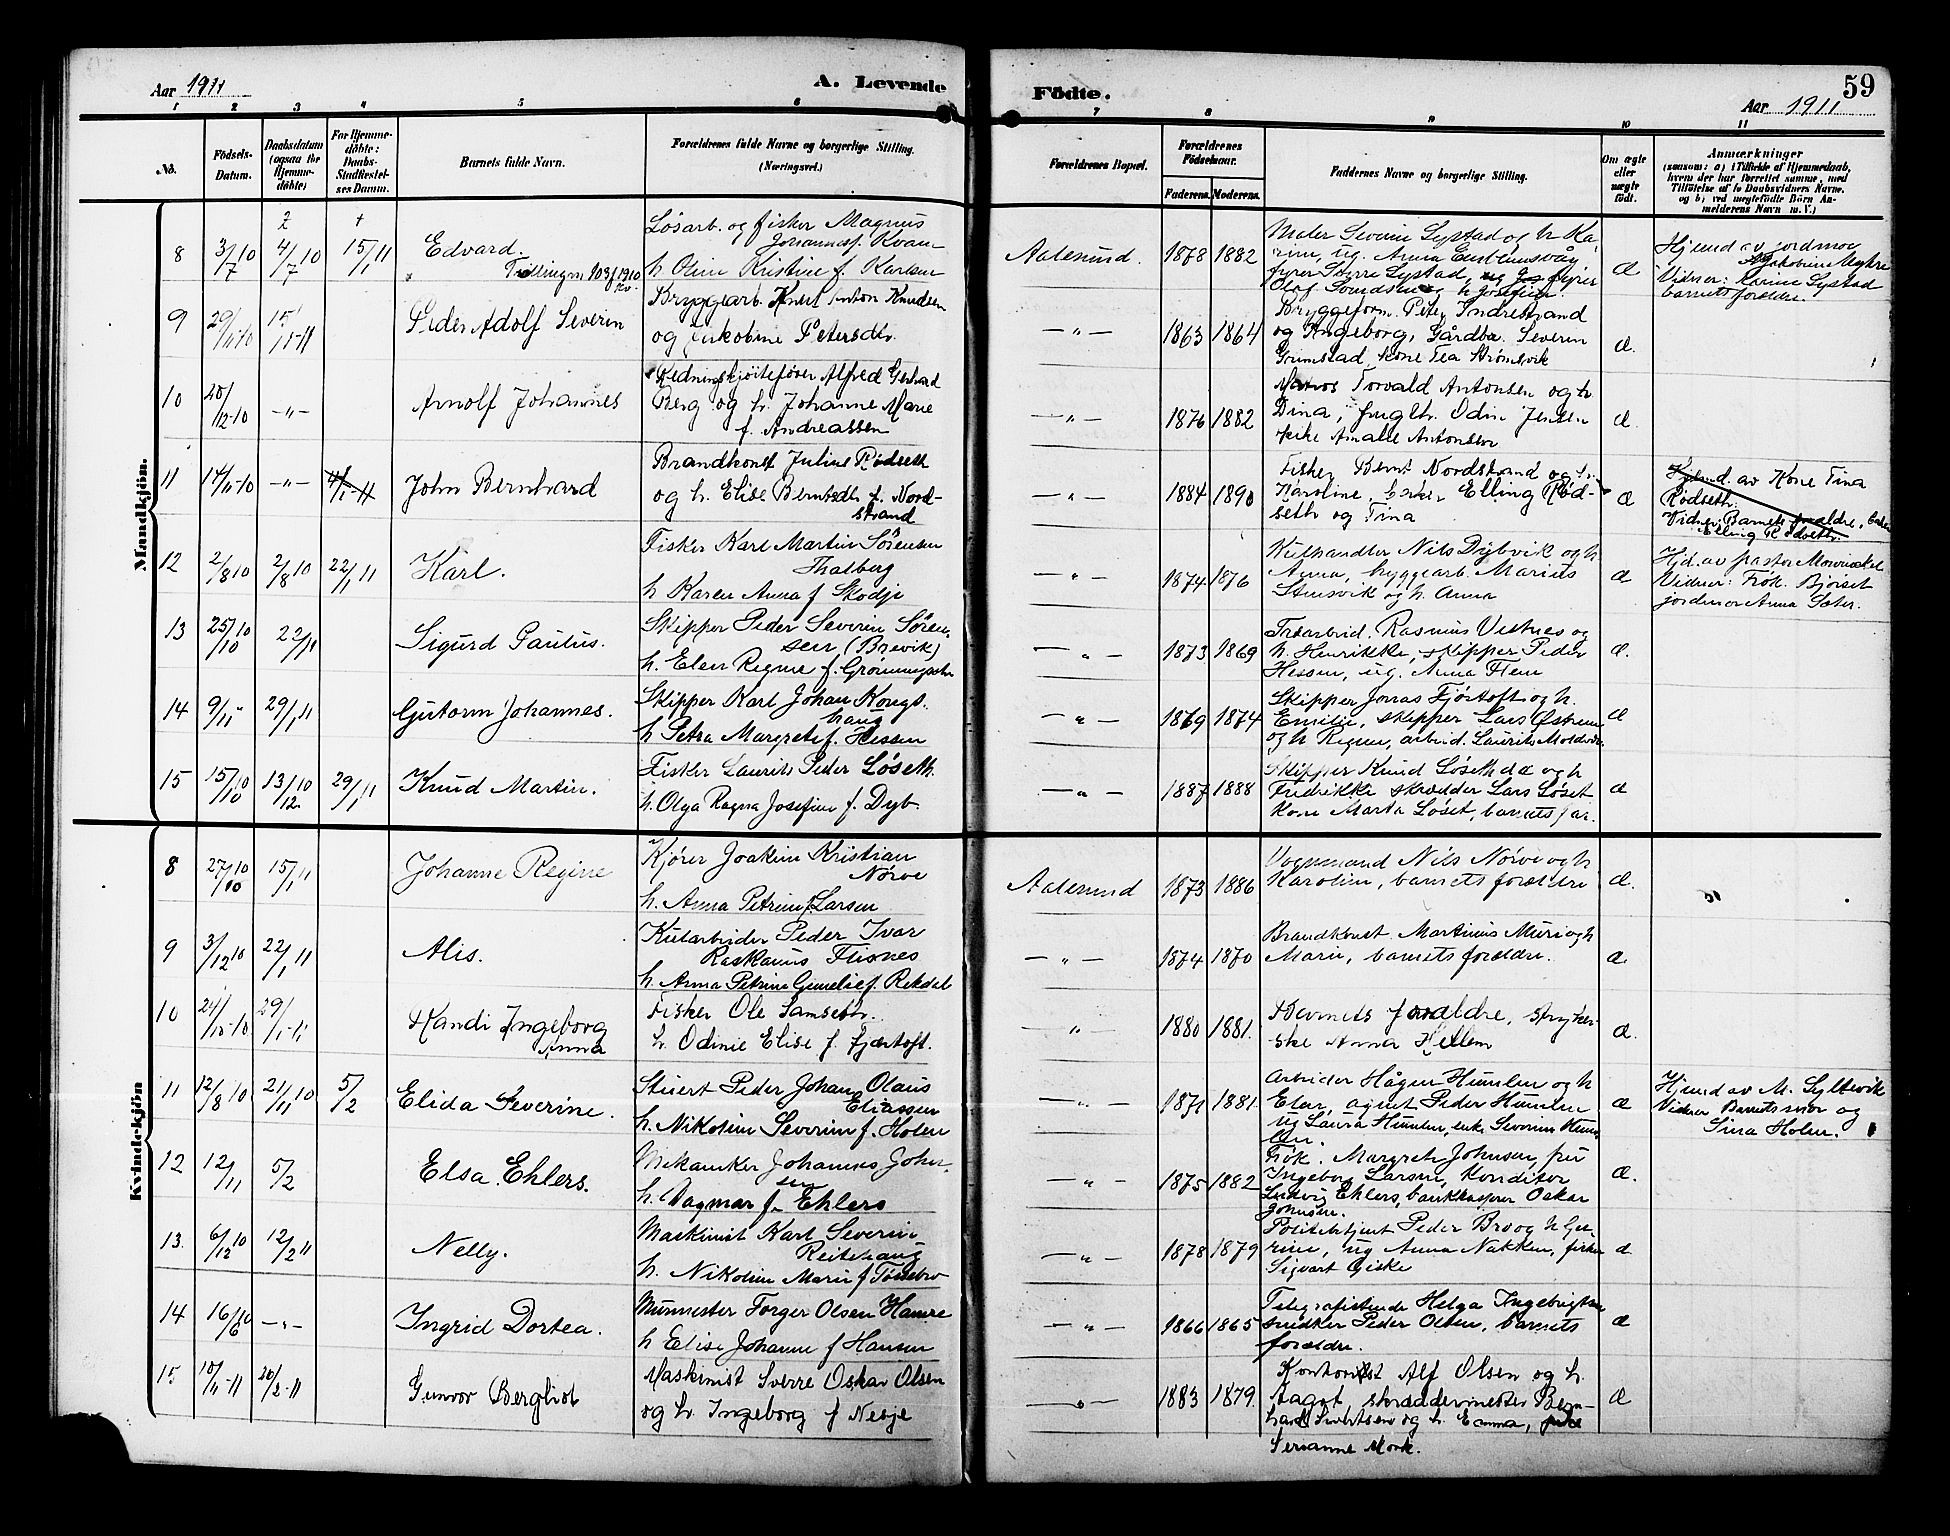 Aar 1911
A. Levende
Födte.
59
Aar 1911
1 2 3 4 5 6
7 8 9 10 11
No.
Födsels-
Datum.
Daabsdatum
(ogsaa for
Hjemme-
döbte)
For Hjemme-
döbte:
Daabs-
Stadfestel-
ses Datum.
Barnets fulde Navn.
Forældrenes fulde Navne og borgerlige Stilling.
(Næringsvei.)
Forældrenes Bopæl.
Forældrenes
Födselsaar.
Faderens. Moderens.
Faddernes Navne og borgerlige Stilling.
Om ægte
eller
uægte
födt.
Anmærkninger
(saasom: a) i Tilfælde af Hjemmedaab,
hvem der har forrettet samme, med
Tilföielse af to Daabsvidners Navne,
og b) ved uægtefödte Börn An-
melderens Navn m. V.)
Mandkjön.
8 3/7 10 4/7 10 15/1 11
Edvard.
Tvillingm 103 f 1910
Kv.
Løsarb. og fisker Magnus
Johannesf. Kvan-
h Oline Kristine f. Karlsen
Aalesund. 1878 1882
Maler Severin Systad og h Ka-
rine, ug. Anna
fyrb. Systad
Olaf h Josefine.
Æ
Hjemd av jordmor
Vidner: Karine Systad
barnets forældre.
9 29/11-10 15/1-11
Peder Adolf Severin
Bryggearb. Knut Anton Knudsen
og Jakobine Petersdtr.
—"— 1863 1864
Bryggeform. Peter Indrestrand
og Ingeborg, Gårdbr. Severin
Grimstad, kone Tea Strømsvik
Æ.
10 20/12-10 —"—
Arnolf Johannes
Redningsskjøitefører Alfred Gerhard
Berg og h. Johanne Marie
f. Andreassen
—"— 1876 1882
Matros Torvald Antonsen og h
Dina, Odin Jensen
pike Amalie Antonsen
Æ
11 14/11-10 —"—
John Bernhard
Brandkonst Julius Rødseth
og h. Elise Berntsdtr f. Nord-
strand
—"— 1884 1890
Fisker Bernt Nordstrand og h
Karoline, Elling Rød-
seth og Tina
Æ
Hjemd. av Kone Tina
Rødseth.
Vidner Barnets forældre,
Elling Rødseth.
12 2/8 10 2/8 10 22/1 11
Karl.
Fisker Karl Martin Sørensen
Thalberg
h Karen Anna f Skodje
—"— 1874 1876
Kulhandler Nils Dybvik og h
Anna, byggearb. Marius
Stensvik og h. Anna
Æ
Hjd. av pastor
Vidner: Frøk. Bjørset
jordmor Anna Sæter.
13 25/10 10 22/1 11
Sigurd Paulus.
Skipper Peder Severin Søren-
sen (Brevik)
h. Elen Regine f. Grønningsæter
—"— 1873 1869
Træarbeid. Rasmus Vestnes og
h. Henrikke, skipper Peder
Hessen, ug. Anna Flem
Æ.
14 9/11 - 29/1 11
Gutorm Johannes.
Skipper Karl Johan Kongs-
haug
h Petra Margrete f. Hessen
—"— 1869 1874
Skipper Jonas Fjørtoft og h.
Emilie, skipper Lars
og h Regine, arbeid. Laurits
Æ
15 15/10 10 13/12 10 29/1 11
Knud Martin.
Fisker Laurits Peder Løseth
h. Olga Ragna Josefine f. Dyb.
—"— 1887 1888
Skipper Knud Løseth og h
Fredrikke skrædder Lars Løset
kone Marta Løset, barnets far.
Æ
Kvindekjön
8 27/10 10 15/1 11
Johanne Regine
Kjører Joakim Kristian
Nørve
h. Anna Petrine f Larsen
Aalesund 1873 1886
Vognmand Nils Nørve og h
Karoline, barnets forældre
Æ.
9 3/12 10 22/1 11
Alis.
Kularbeider Peder Ivar
Flisnes
h. Anna Petrine f. Rekdal
—"— 1874 1870
Brandkonst. Martinus Muri og h
Marie, barnets forældre.
Æ.
10 24/10-10 29/1-11
Randi Ingeborg
Anna
Fisker Ole Samseth.
h. Odinie Elise f. Fjærtoft.
" 1880 1881.
Barnets forældre, stryker-
ske Anna Hellem
Æ.
11 12/8 10 21/11 10 5/2
Elida Severine.
Stuert Peder Johan Olaus
Eliassen
h. Nikoline Severine f. Holen
—"— 1871 1881.
Arbeider Hågen Humlen og h
Elen, agent Peder Humlen
ug Laura Humlen, enke Severine Hum-
len.
Æ
Hjemd av M. Syltevik
Vidner Barnets mor og
Sina Holen.
12 12/11 5/2
Elsa Ehlers.
Mekaniker Johannes John-
sen
h. Dagmar f. Ehlers
—"— 1875 1882
Frøk. Margrete Johnsen, frk
Ingeborg Larsen, Konditor
Ludvig Ehlers, bankkasserer Oskar
Johnsen.
Æ.
13. 6/12 10 12/2 11
Nelly.
Maskinist Karl Severin
Reitehaug
h. Nikoline Marie f Tøssebro
—"— 1878 1879
Politibetjent Peder Bro og h Gu-
rine, ug Anna Nakken, fisker
Sigvart Giske
Æ
14 16/6 10 —"—
Ingrid Dortea.
Murmester Torger Olsen Hamre
h Elise Johanne f Hansen
—"— 1866 1865
Telegrafistinde Helga Ingebrigtsen
snedker Peder Olsen, barnets
forældre.
Æ
15 10/11-11 20/2-11
Gunvor Bergliot
Maskinist Sverre Oskar Olsen
og h. Ingeborg f Nesje
—"— 1883 1879.
Kontorist Alf Olsen og h.
Aagot, skræddermester Bern-
hard Sivertsen og h. Emma, pike
Serianne Mork.
Æ